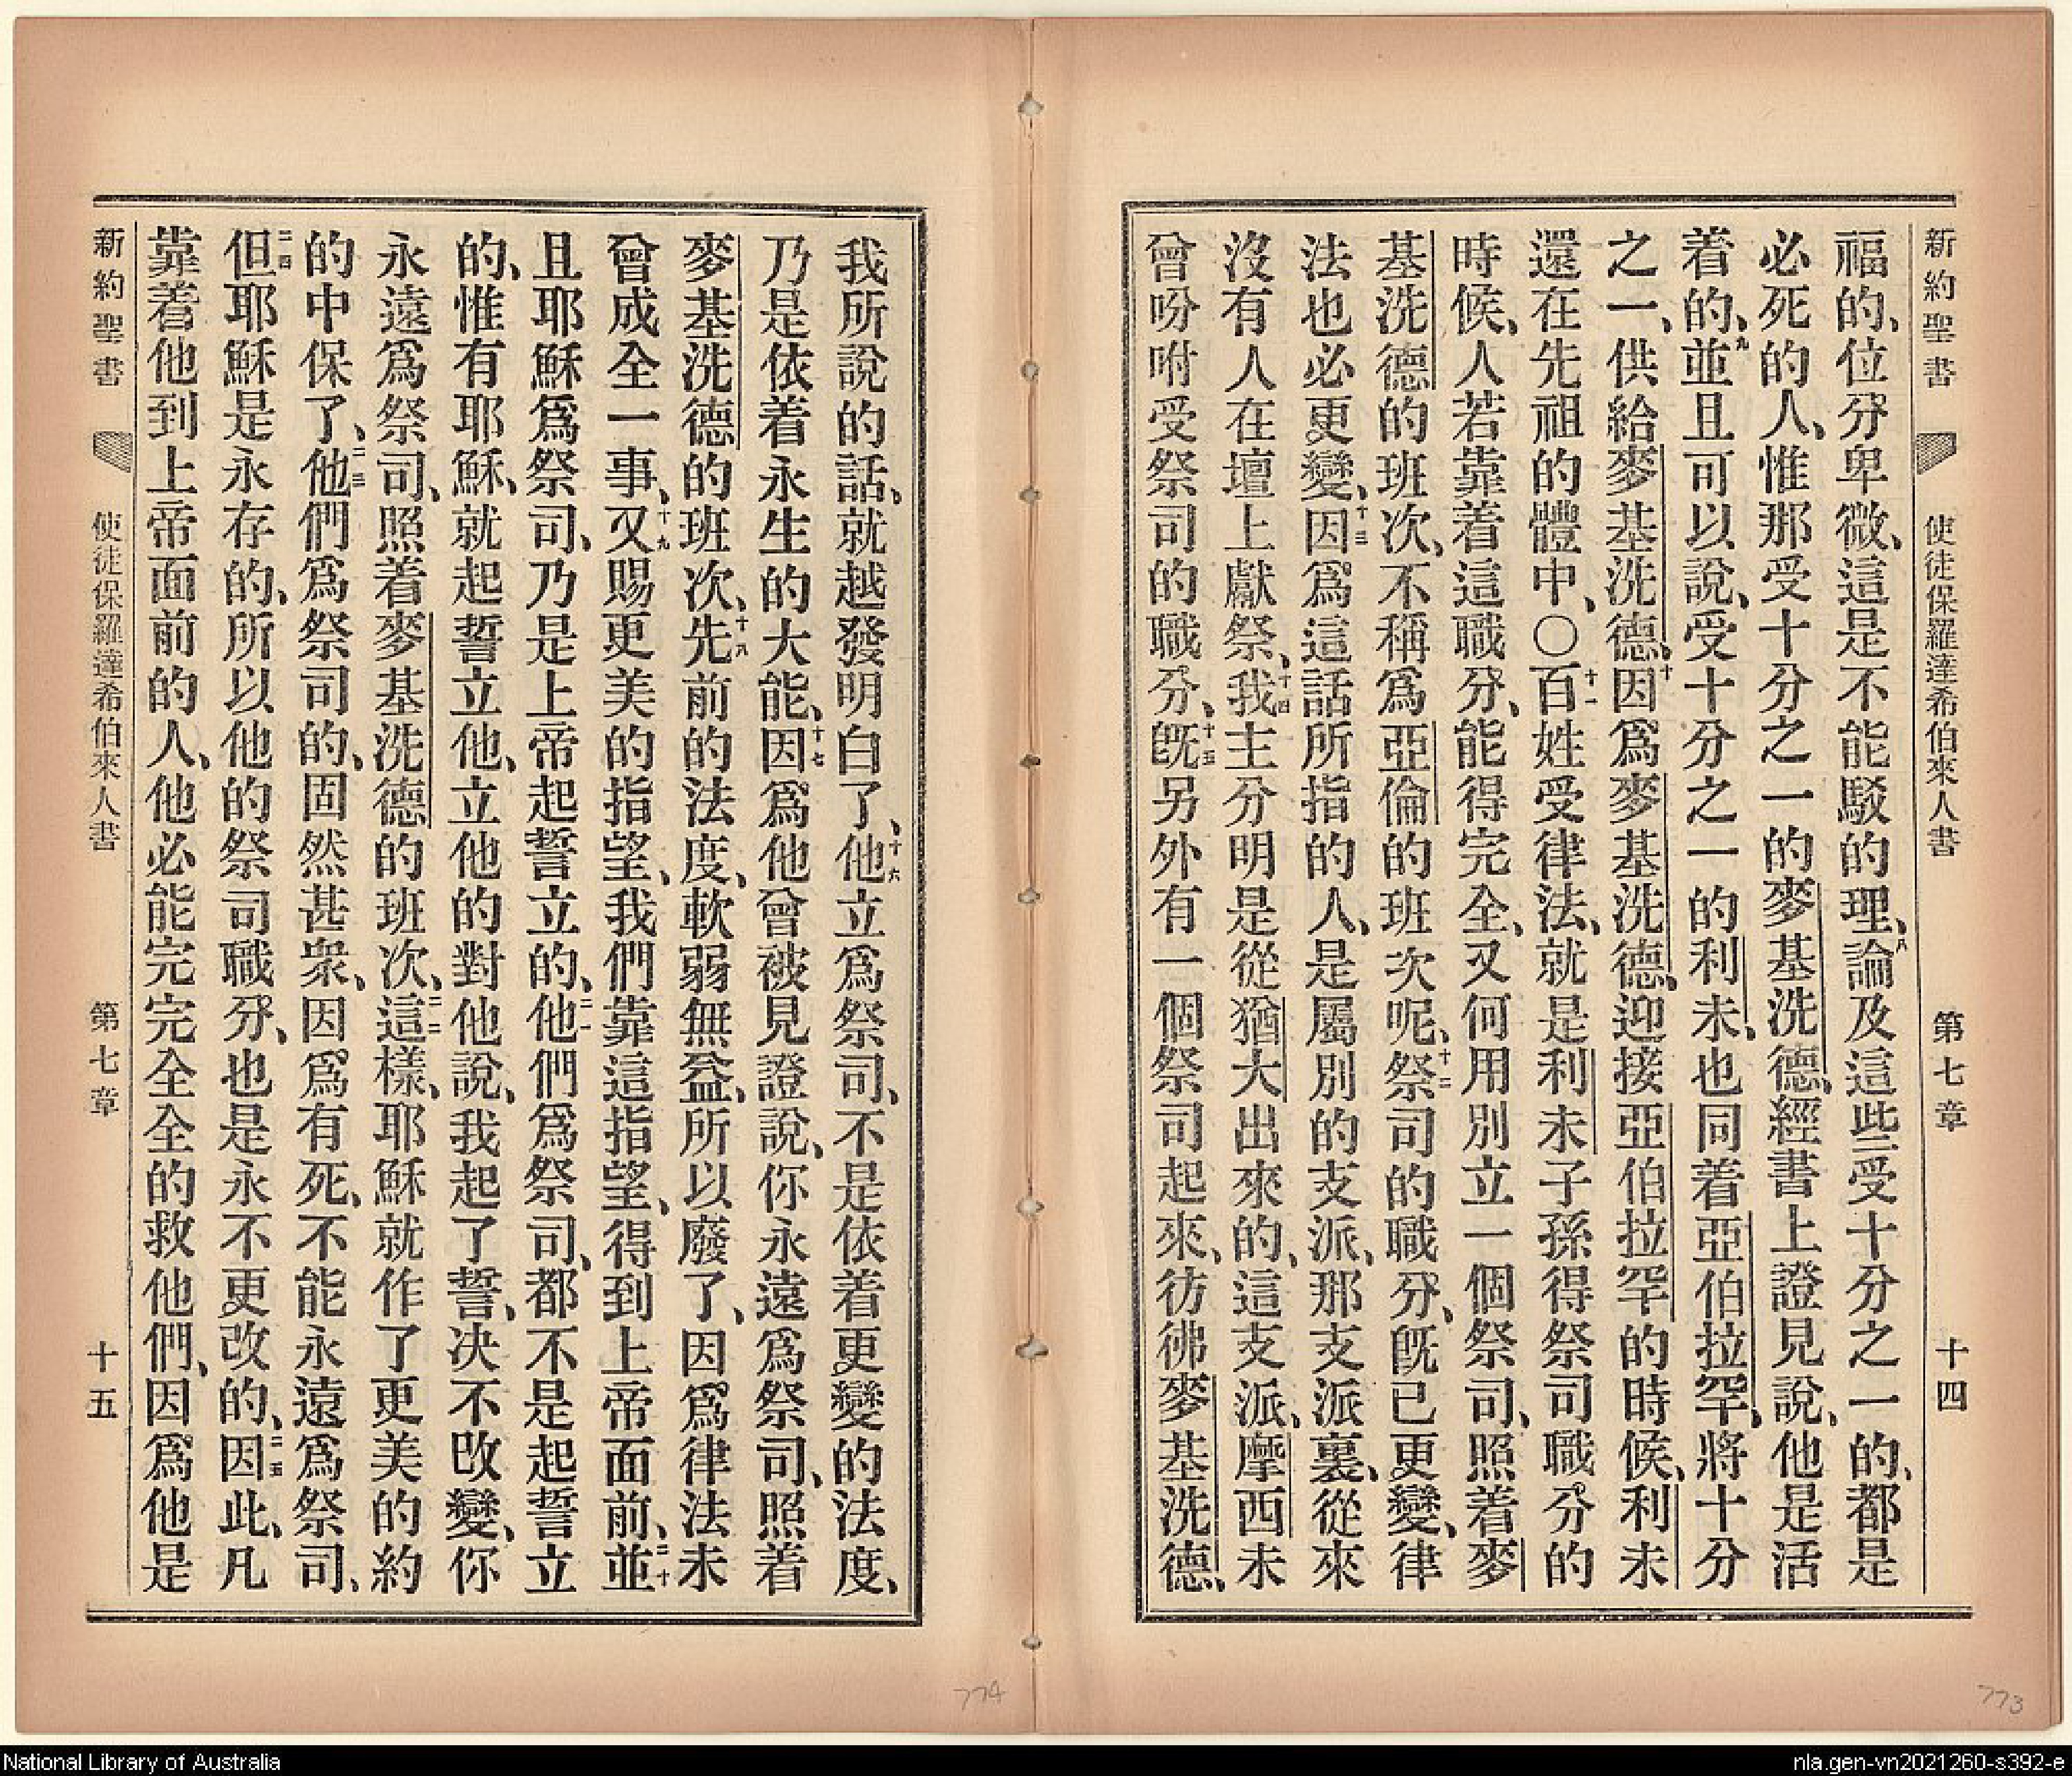 新約聖書 使徒保羅達希伯來人書 第七章 十四
福的、位分卑微、這是不能駁的理、八論及這些受十分之一的、都是
必死的人、惟那受十分之一的麥基洗德、經書上證見說、他是活
着的、九並且可以說、受十分之一的利未、也同着亞伯拉罕、將十分
之一、供給麥基洗德、十因爲麥基洗德、迎接亞伯拉罕的時候、利未
還在先祖的體中、〇十一百姓受律法、就是利未子孫得祭司職分的
時候、人若靠着這職分、能得完全、又何用別立一個祭司、照着麥
基洗德的班次、不稱爲亞倫的班次呢、十二祭司的職分、旣已更變、律
法也必更變、十三因爲這話所指的人、是屬別的支派、那支派裏、從來
沒有人在壇上獻祭、十四我主分明是從猶大出來的、這支派、摩西未
曾吩咐受祭司的職分、十五旣另外有一個祭司起來、彷彿麥基洗德、
我所說的話、就越發明白了、十六他立爲祭司、不是依着更變的法度、
乃是依着永生的大能、十七因爲他曾被見證說、你永遠爲祭司、照着
麥基洗德的班次、十八先前的法度、軟弱無益、所以廢了、因爲律法未
曾成全一事、十九又賜更美的指望、我們靠這指望、得到上帝面前、二十並
且耶穌爲祭司、乃是上帝起誓立的、二一他們爲祭司、都不是起誓立
的、惟有耶穌、就起誓立他、立他的對他說、我起了誓、决不改變、你
永遠爲祭司、照着麥基洗德的班次、二二這樣、耶穌就作了更美的約
的中保了、二三他們爲祭司的、固然甚衆、因爲有死、不能永遠爲祭司、
二四但耶穌是永存的、所以他的祭司職分、也是永不更改的、二五因此、凡
靠着他到上帝面前的人、他必能完完全全的救他們、因爲他是
新約聖書 使徒保羅達希伯來人書 第七章 十五
774
773
National Library of Australia
nla.gen-vn2021260-s392-e